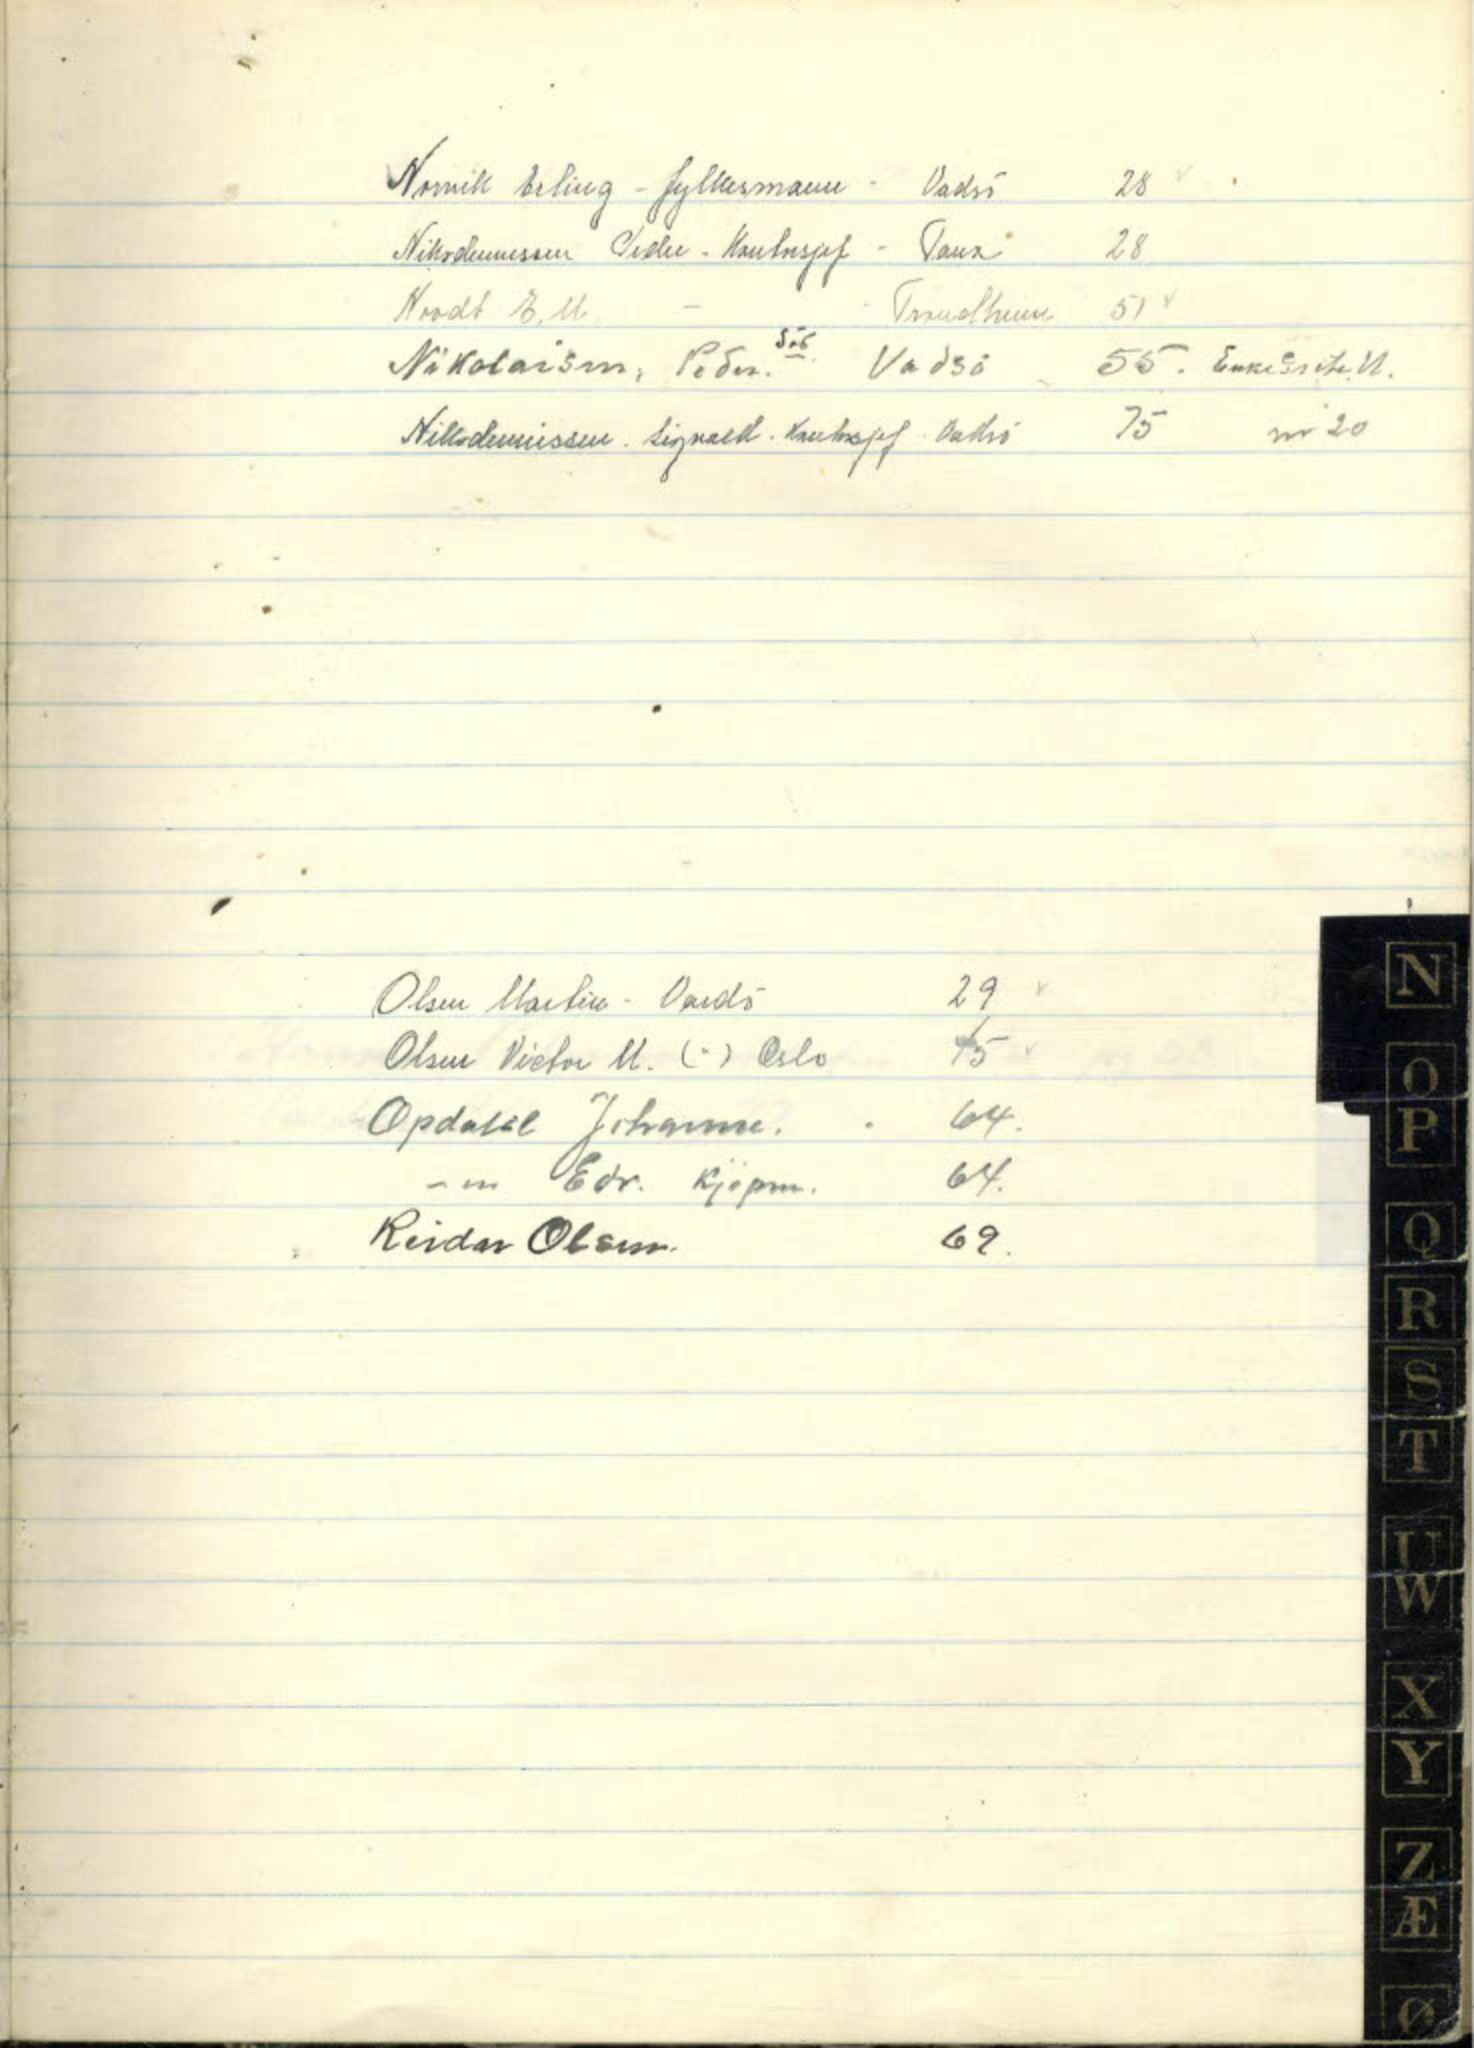 Normik Erling - fylkesmann - Vadsö 28 v
Nikodemussen Peder - Kontorsjef - Tana 28
Noodt E. M. - - Trondheim 51 v
Nikolaisen, Peder. Vadsö 55.
Nikodemissen. Sigvald. Kontorsjef. Vadsö 75 nr 20
Olsen Martin - Vardö 29 v
Olsen Victor M. (-) Oslo 75 v
Opdahl Johanne. 64.
Edv. Kjöpm. 64.
Reidar Olsen. 69.
N
O
P
Q
R
S
T
U
W
X
Y
Z
Æ
Ø